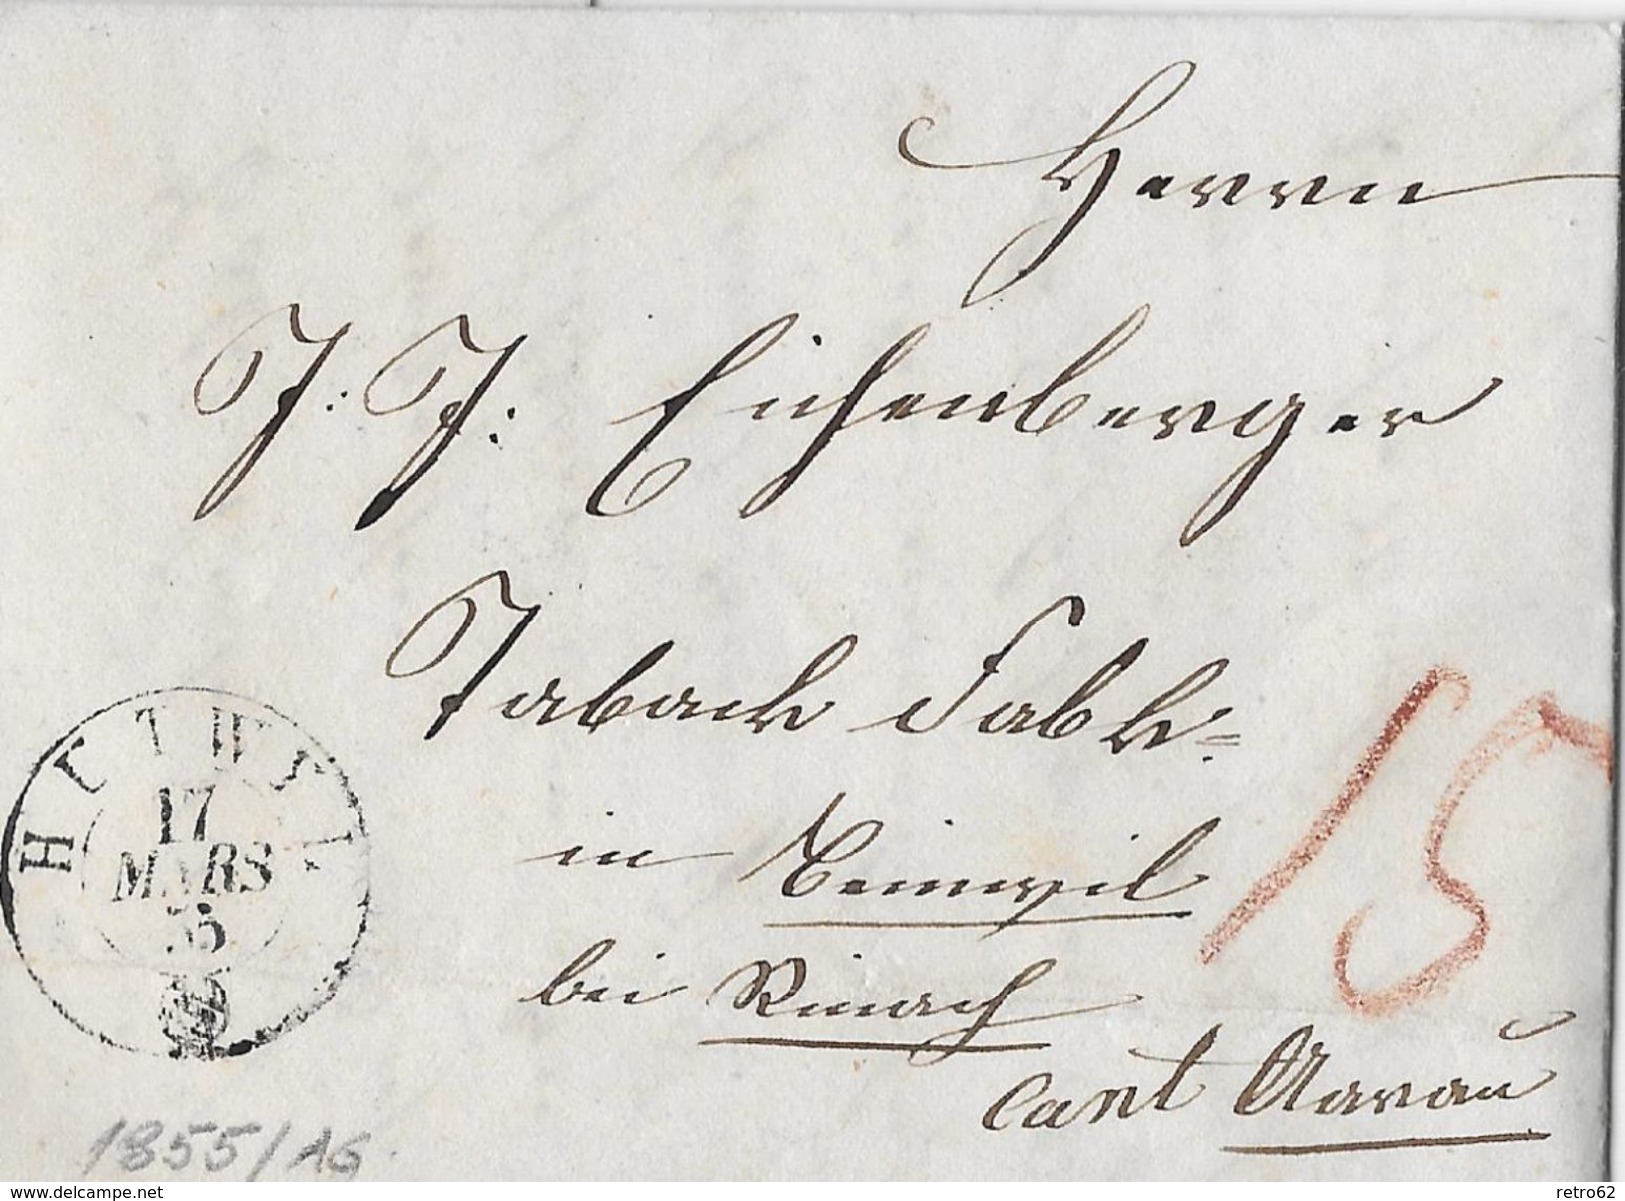 Herrn
J: J: Eichenberger
Taback Fabk:
in Beinwyl
bei Rinach
Cant Aarau
15
HUTWYL
17
MARS
55
1855/16
www.delcampe.net
retro62